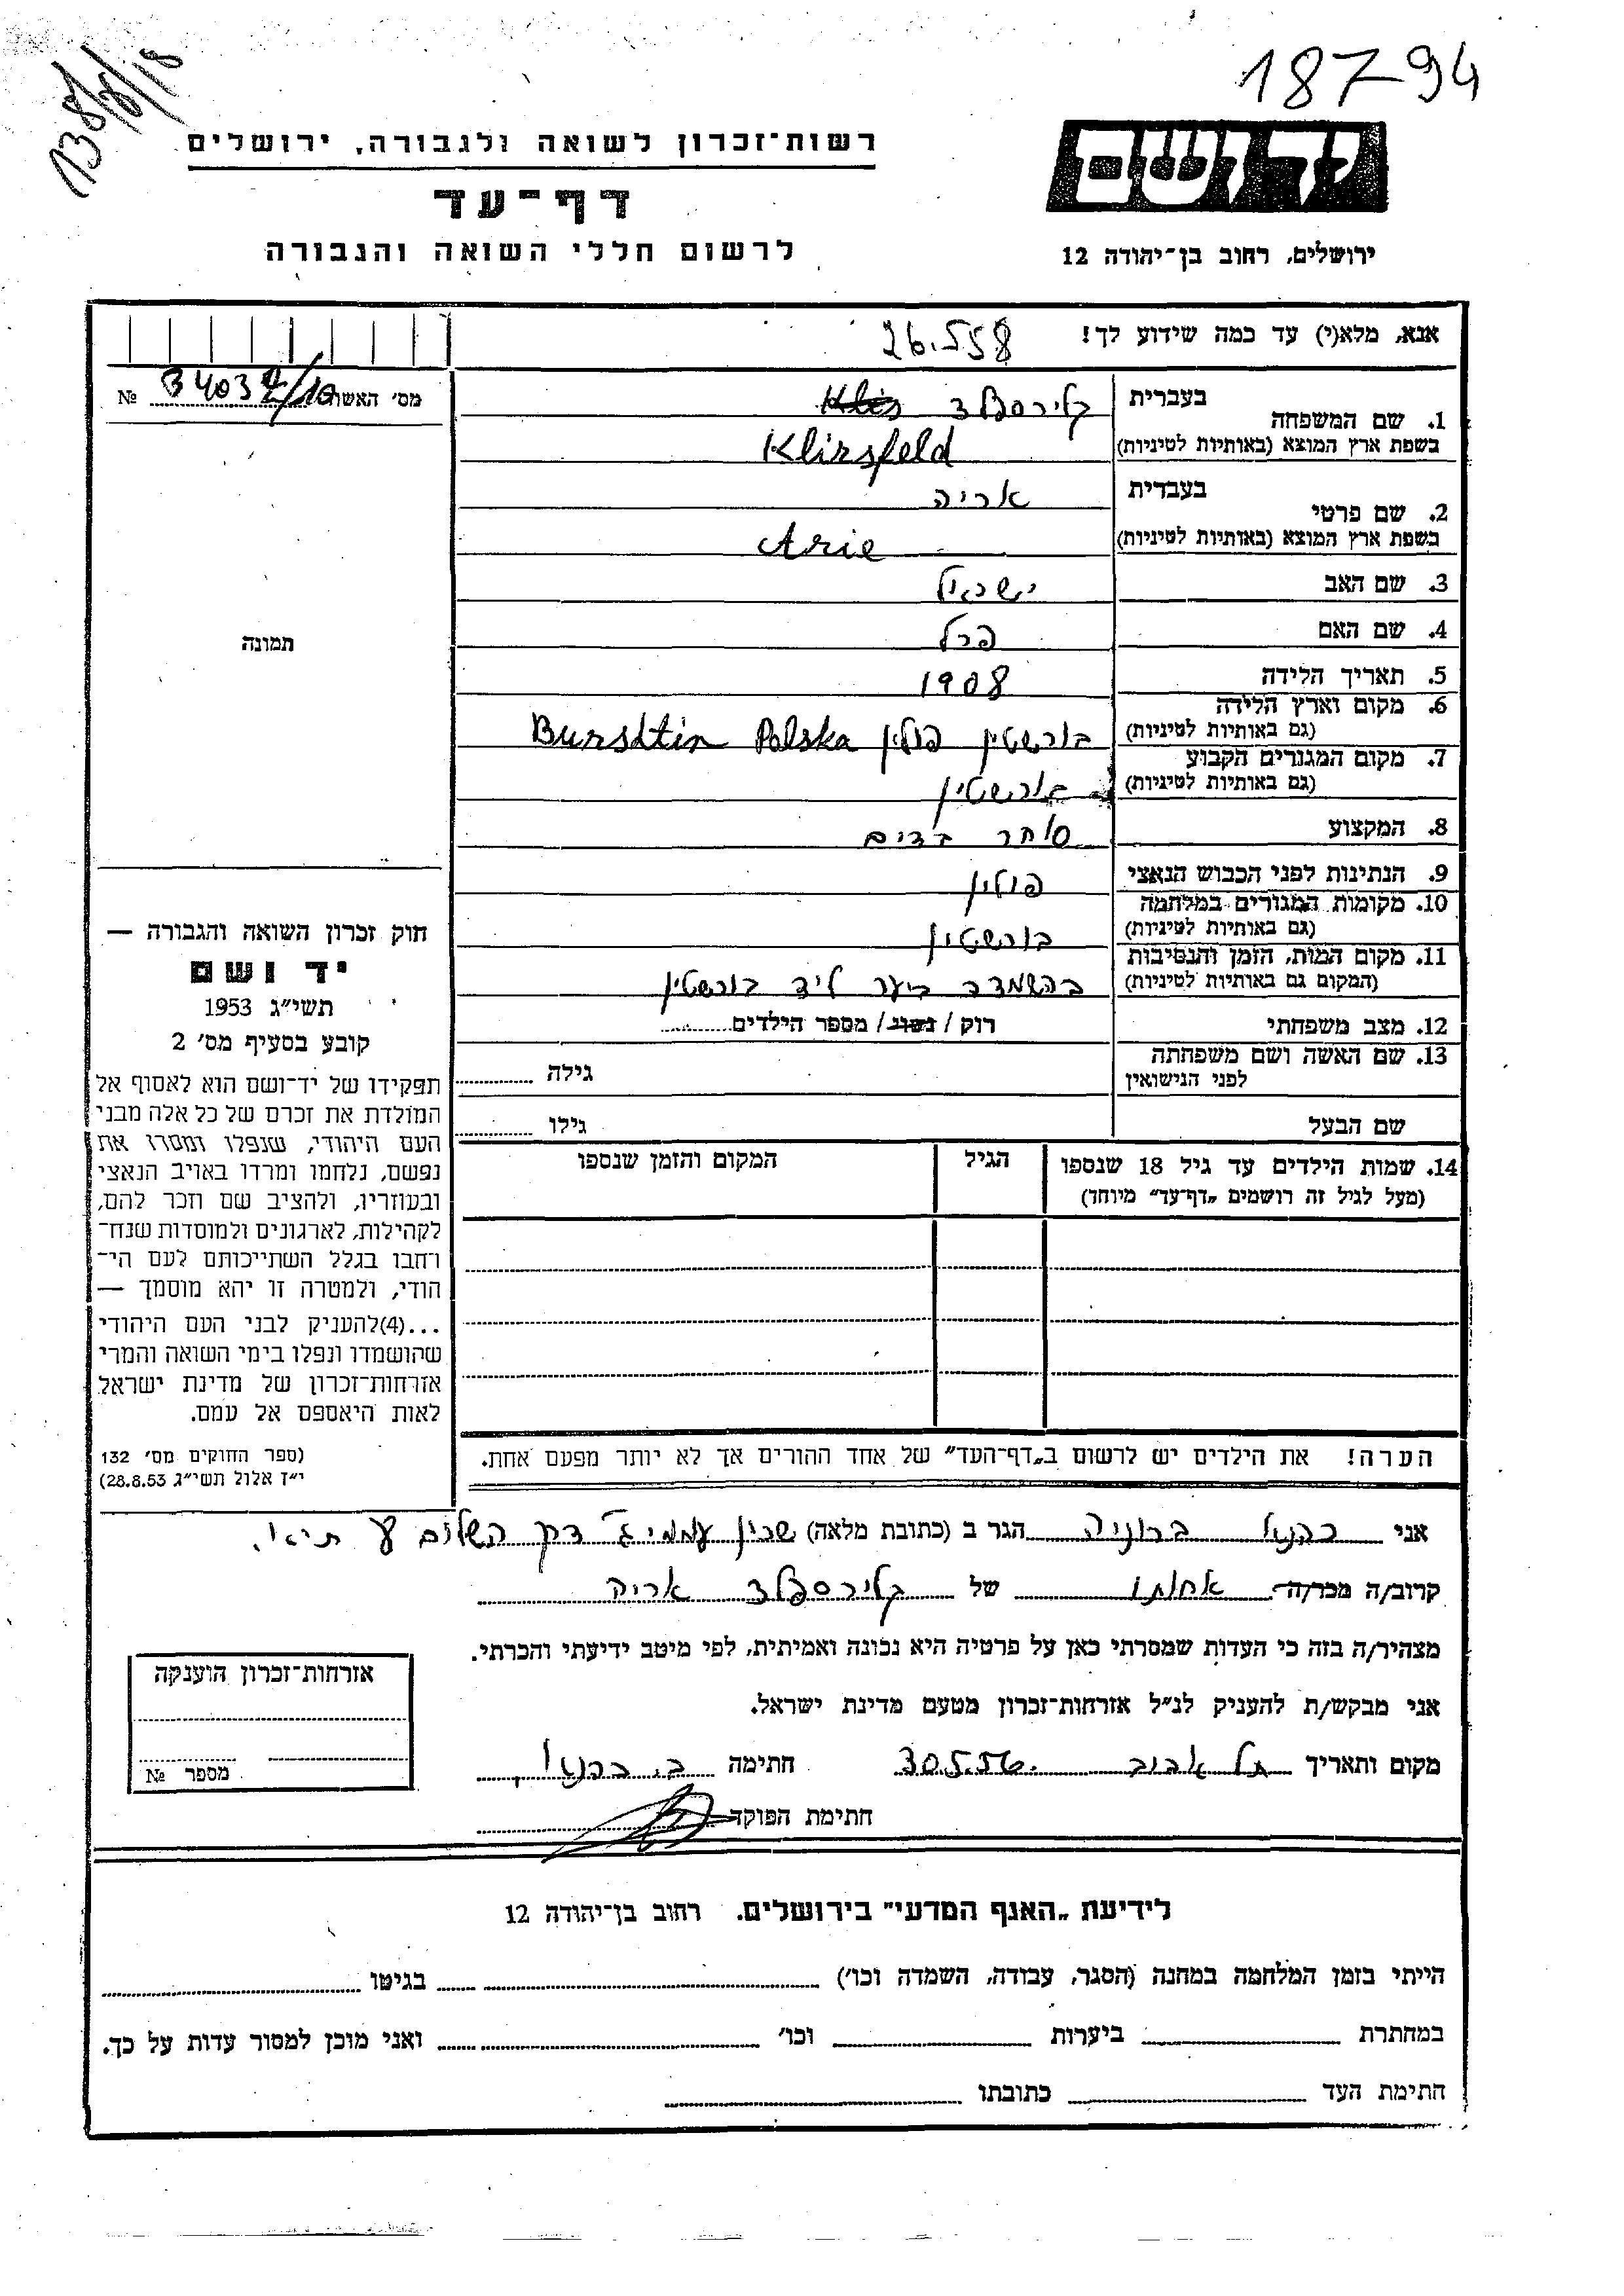 138/8/18
18794
רשות־זכרון לשואה ולגבורה, ירושלים
דף־עד
לרשום חללי השואה והגבורה
יד ושם
ירושלים, רחוב בן־יהודה 12
אנא, מלא(י) עד כמה שידוע לך! 26.5.58
מס׳ האשה №
1. שם המשפחה בעברית קלירספלד
בשפת ארץ המוצא (באותיות לטיניות) Klirsfeld
2. שם פרטי בעברית אריה
בשפת ארץ המוצא (באותיות לטיניות) Arie
3. שם האב ישראל
4. שם האם פרל
תמונה
5. תאריך הלידה 1908
6. מקום וארץ הלידה (גם באותיות לטיניות) בורשטין פולין Burshtin Polska
7. מקום המגורים הקבוע (גם באותיות לטיניות) בורשטין
8. המקצוע סוחר בדים
9. הנתינות לפני הכבוש הנאצי פולין
10. מקומות המגורים במלחמה (גם באותיות לטיניות) בורשטין
11. מקום המות, הזמן והנסיבות (המקום גם באותיות לטיניות) בהשמדה ביער ליד בורשטין
12. מצב משפחתי רוק / נשוי / מספר הילדים
13. שם האשה ושם משפחתה לפני הנישואין גילה
שם הבעל גילו
14. שמות הילדים עד גיל 18 שנספו הגיל המקום והזמן שנספו
(מעל לגיל זה רושמים „דף־עד״ מיוחד)
הערה! את הילדים יש לרשום ב„דף־העד״ של אחד ההורים אך לא יותר מפעם אחת.
חוק זכרון השואה והגבורה —
יד ושם
תשי״ג 1953
קובע בסעיף מס׳ 2
תפקידו של יד־ושם הוא לאסוף אל
המולדת את זכרם של כל אלה מבני
העם היהודי, שנפלו ומסרו את
נפשם, נלחמו ומרדו באויב הנאצי
ובעוזריו, ולהציב שם וזכר להם,
לקהילות, לארגונים ולמוסדות שנח־
רחבו בגלל השתייכותם לעם הי־
הודי, ולמטרה זו יהא מוסמך —
...(4)להעניק לבני העם היהודי
שהושמדו ונפלו בימי השואה והמרי
אזרחות־זכרון של מדינת ישראל
לאות היאספם אל עמם.
(ספר החוקים מס׳ 132
י״ז אלול תשי״ג 28.8.53)
אני כהנא ברוניה הגר ב (כתובת מלאה) דרך השלום
קרוב/ה מכר/ה אחותו של קלירספלד אריה
מצהיר/ה בזה כי העדות שמסרתי כאן על פרטיה היא נכונה ואמיתית, לפי מיטב ידיעתי והכרתי.
אני מבקש/ת להעניק לנ״ל אזרחות־זכרון מטעם מדינת ישראל.
מקום ותאריך תל אביב 30.5.56 חתימה ב. כהנא
חתימת הפוקד
אזרחות־זכרון הוענקה
מספר №
לידיעת „האגף המדעי״ בירושלים. רחוב בן־יהודה 12
הייתי בזמן המלחמה במחנה (הסגר, עבודה, השמדה וכו׳) בגיטו
במחתרת ביערות וכו׳ ואני מוכן למסור עדות על כך.
חתימת העד כתובתו